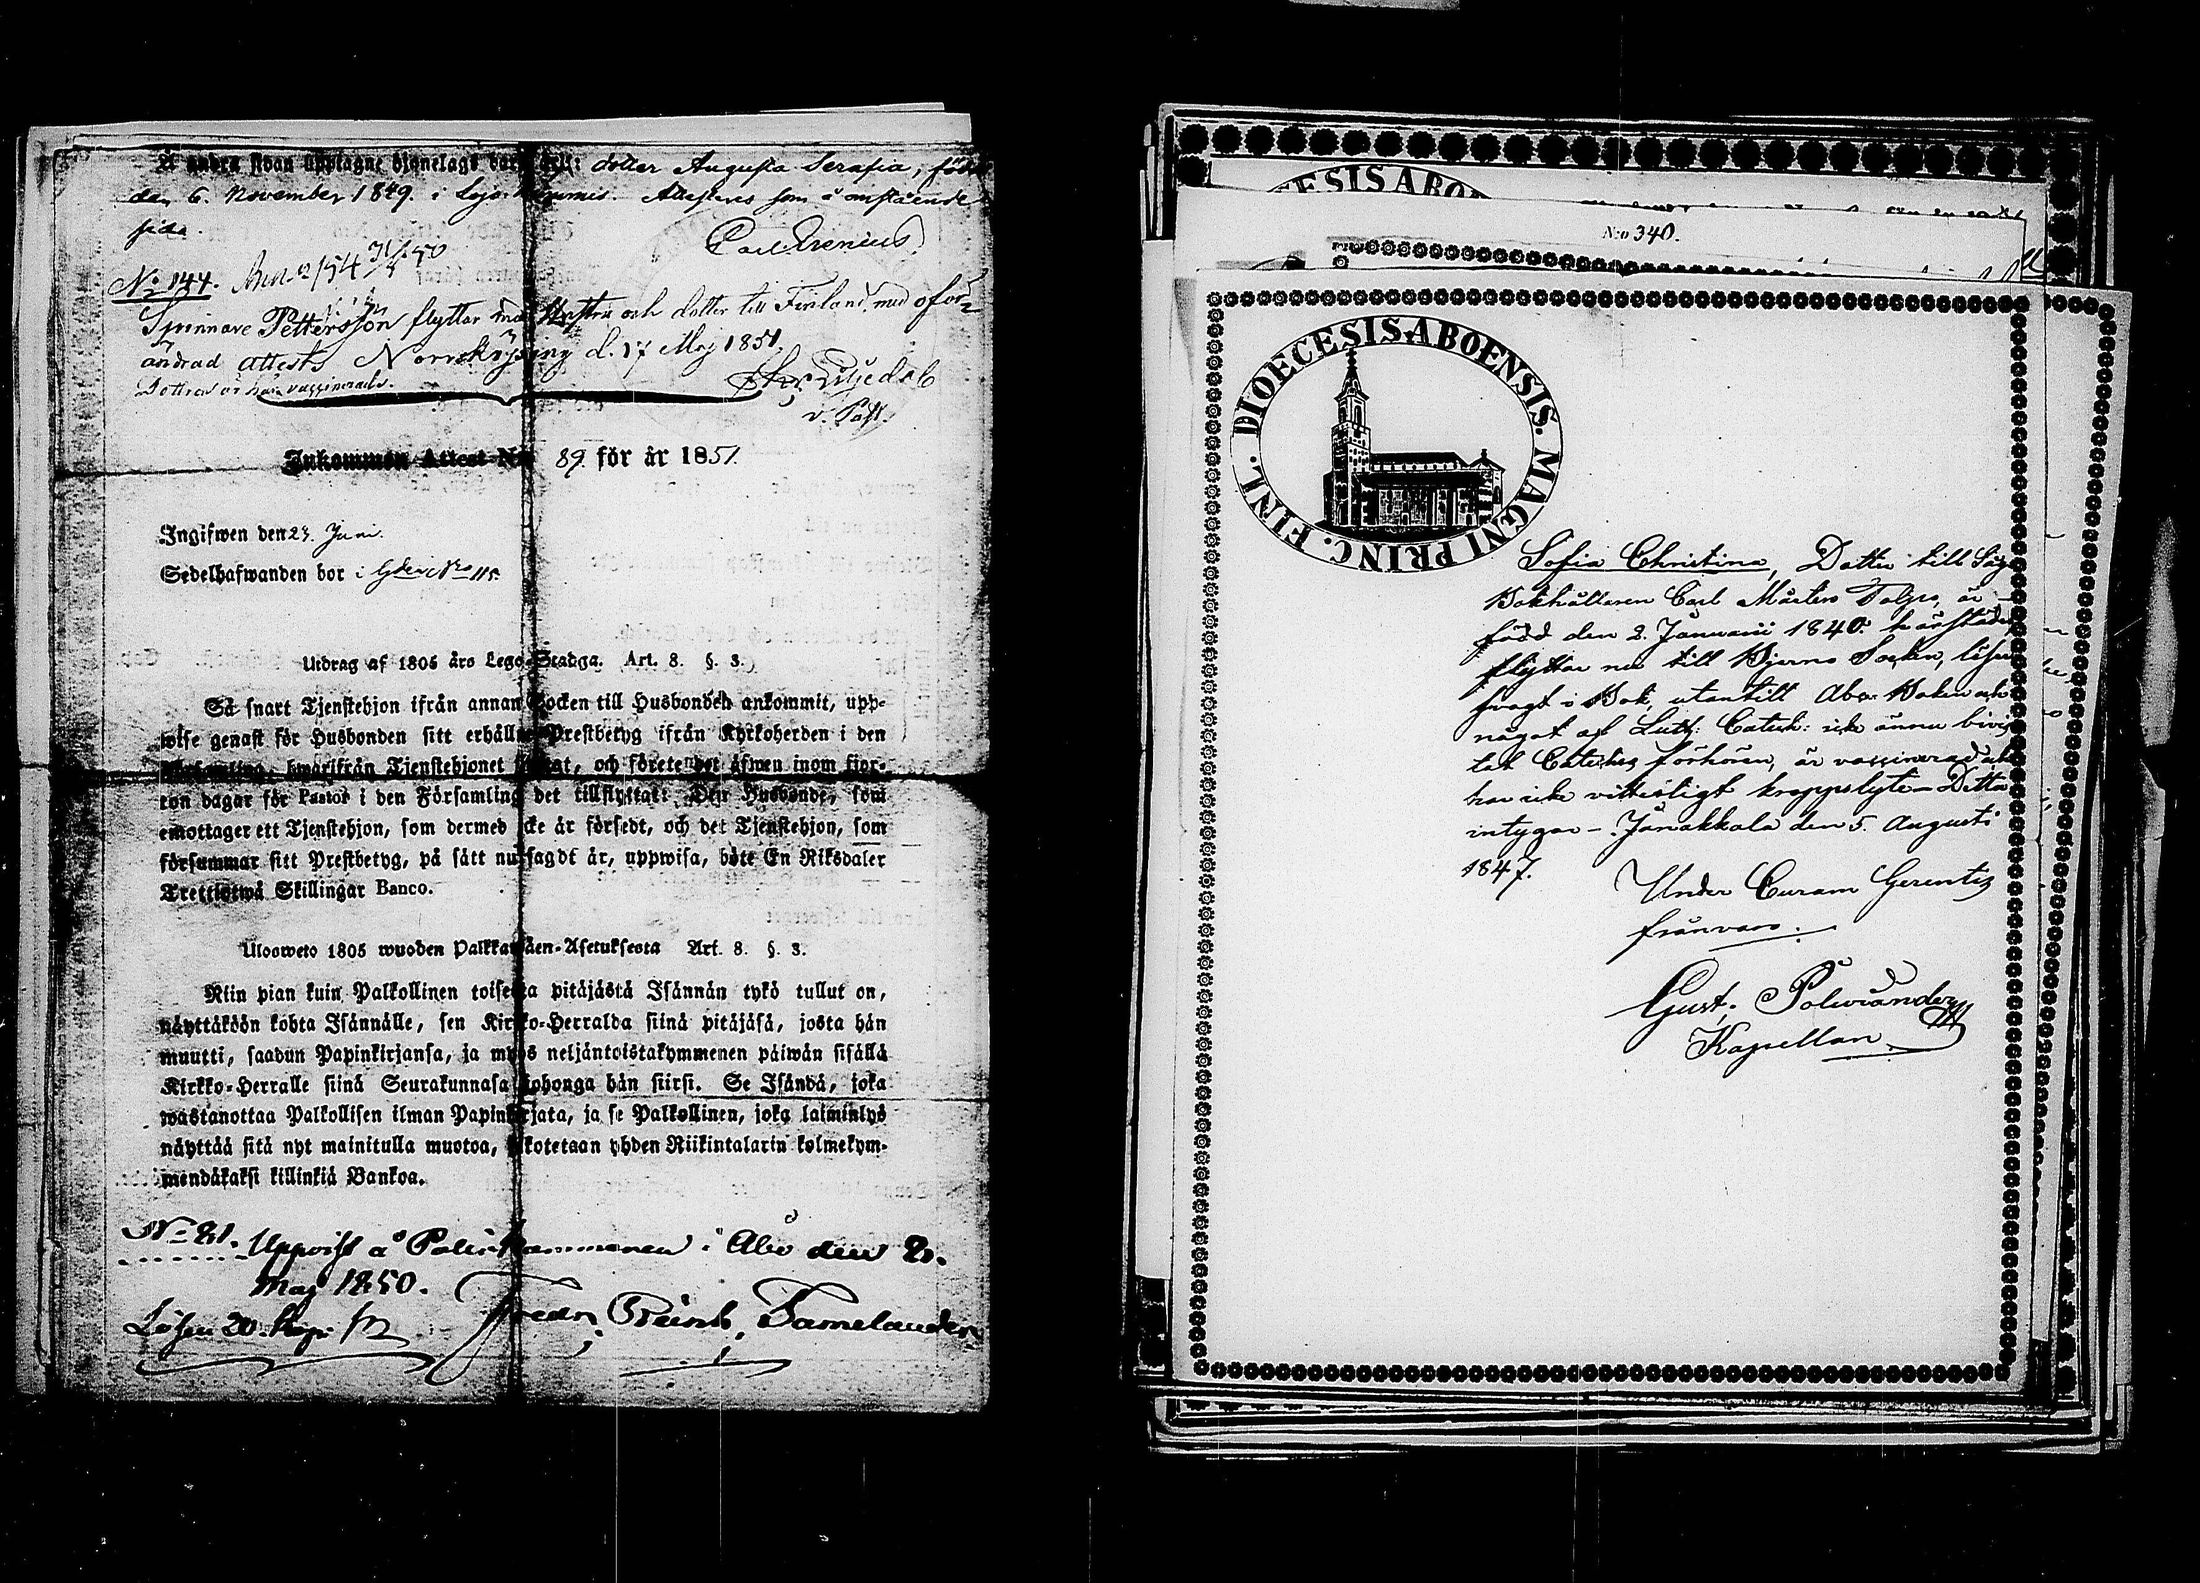 Å andra sidan upptagne hjonelags barn äro: dotter Augusta Serafia, född
den 6. November 1849. i Lojo Nummis. Attesteras som å omstående
sida.
Carl Irenius
No 144. 2/54 31/5 50
Spinnare Pettersson flyttar med Hustru och dotter till Finland med oför-
ändrad attest. Norrköping d. 17 Maj 1851.
Dottren är här vaccinerad.
Liljedahl
v. Past.
Inkommen Attest N:o 89. för år 1851.
Ingifwen den 23. Juni.
Sedelhafwanden bor i No 115.
Utdrag af 1805 års Lego-Stadga. Art. 8. §. 3.
Så snart Tjenstehjon ifrån annan Socken till Husbonden ankommit, upp-
wise genast för Husbonden sitt erhållne Prestbetyg ifrån Kyrkoherden i den
Församling, hwarifrån Tjenstehjonet flyttat, och förete det äfwen inom fjor-
ton dagar för Pastor i den Församling det tillflyttat. Den Husbonde, som
emottager ett Tjenstehjon, som dermed icke är försedt, och det Tjenstehjon, som
försummar sitt Prestbetyg, på sätt nu sagdt är, uppwisa, böte En Riksdaler
Trettiotwå Skillingar Banco.
Ulosweto 1805 wuoden Palkkawäen-Asetuksesta Art. 8. §. 3.
Niin pian kuin Palkollinen toisesta pitäjästä Isännän tykö tullut on,
näyttäköön kohta Isännälle, sen Kirkko-Herralda siinä pitäjäsä, josta hän
muutti, saadun Papinkirjansa, ja myös neljäntoistakymmenen päiwän sisällä
Kirkko-Herralle siinä Seurakunnasa johonga hän siirsi. Se Isändä, joka
wastanottaa Palkollisen ilman Papinkirjata, ja se Palkollinen, joka laiminlyö
näyttää sitä nyt mainitulla muotoa, sakotetaan yhden Riikintalarin kolmekym-
mendäkaksi killinkiä Bankoa.
No 21. Uppvist å Poliskammaren i Åbo den 2.
Maj 1850.
Lösen 20. kop. Fredr. Reinh. Tamelander
ECESIS ABO
N:o 340.
DIOECESIS ABOENSIS. MAGNI PRINC. FINL.
Sofia Christina, Dotter till Såg
Bokhållaren Carl Mårten Tolpo, är
född den 2. Januarii 1840. härstädes
flyttar nu till Bjerno Socken, läser
svagt i Bok, utantill Abc Boken och
något af Luth: Catech: icke ännu bivis
tat Cateches förhören, är vaccinerad och
har icke vitterligt kroppslyte – Detta
intygar – Janakkala den 5. Augusti
1847.
Under Curam Gerentis
frånvaro.
Gust. Polviander
Kapellan